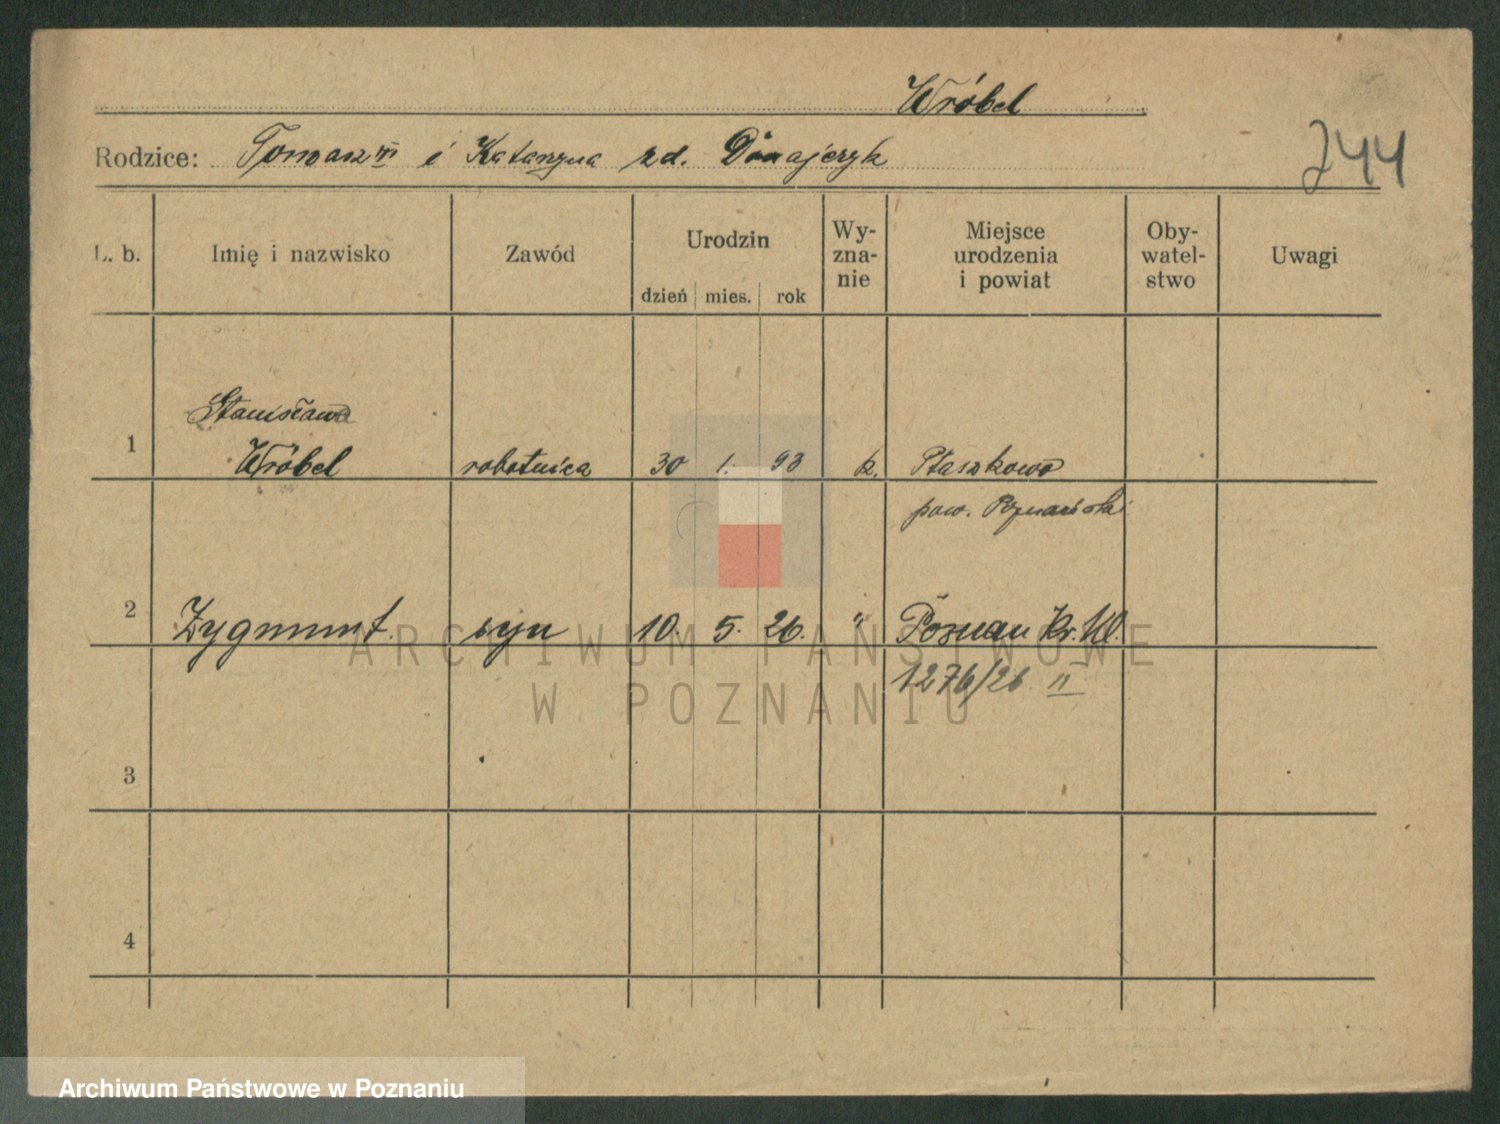 Wróbel
Rodzice: Tomasz i Katarzyna zd. Donajczyk
744
L. b. Imię i nazwisko Zawód Urodzin Wy-zna-nie Miejsce urodzenia i powiat Oby-watel-stwo Uwagi
dzień mies. rok
Stanisława
1 Wróbel robotnica 30 1. 93 k. Ptaszkowo
pow. Poznański
2 Zygmunt. syn 10. 5. 26. " Poznań
1276/26 II
3
4
ARCHIWUM PAŃSTWOWE
W POZNANIU
Archiwum Państwowe w Poznaniu